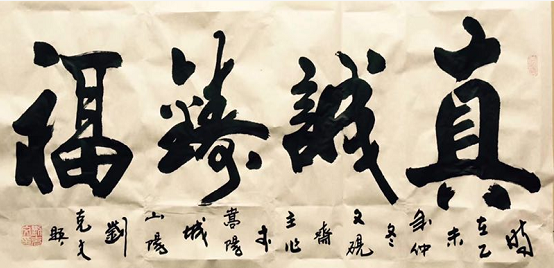 真誠鑄福
時在乙未年仲冬文硯齋主於嵩陽城山陽劉克文